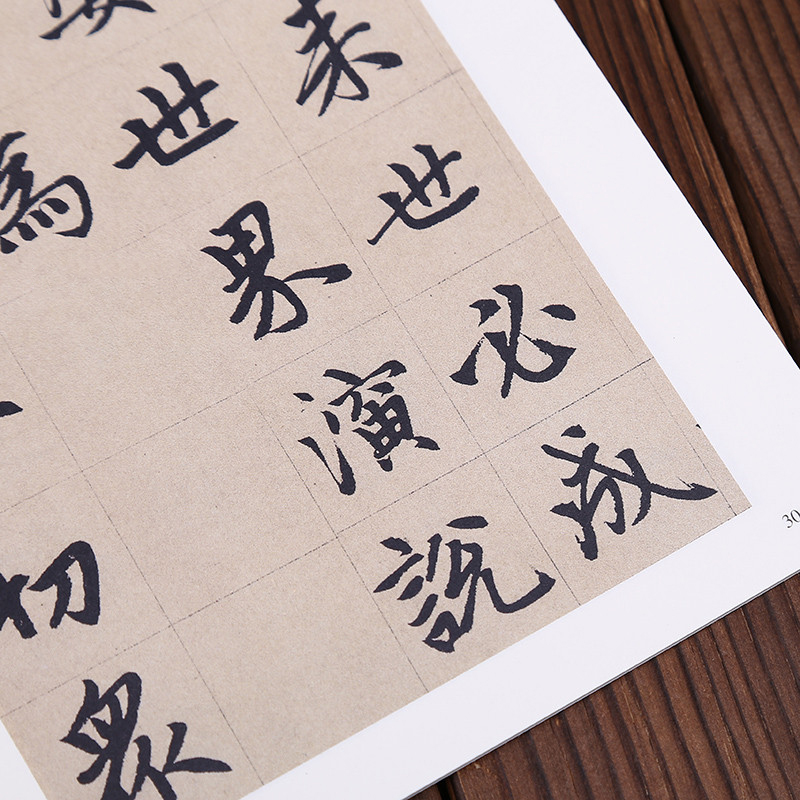 来世必成
世界演說
為
切眾
30